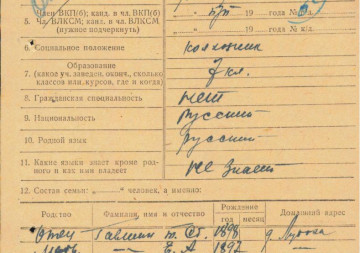 Член ВКП(б); канд. в чл. ВКП(б)
5. Чл. ВЛКСМ; канд. в чл. ВЛКСМ
(нужное подчеркнуть)
19 года №
19 года № к/д.
6. Социальное положение колхозник
7. Образование
(какое уч. заведен. оконч., сколько
классов или курсов, где и когда) 7 кл.
8. Гражданская специальность нет
9. Национальность русский
10. Родной язык русский
11. Какие языки знает кроме род-
ного и как ими владеет не знает
12. Состав семьи: „ “ человек, а именно:
Родство Фамилия, имя и отчество Рождение Домашний адрес
год месяц
Отец 1898 д.
Мать — Е. А 1897 —